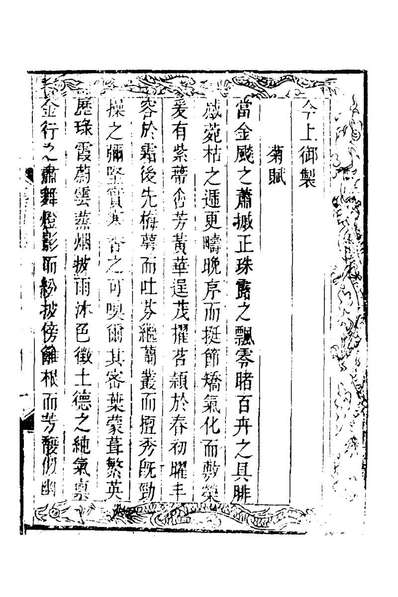 今上御製
菊賦
當金颷之蕭摵正珠露之飄零睹百卉之具腓
感菀枯之遞更疇晚序而挺節矯氣化而敷榮
爰有紫蒂含芳黃華逞茂擢苕穎於春初曜丰
容於霜後先梅萼而吐芬繼蘭叢而擅秀既勁
操之彌堅賞寒香之可嗅爾其密葉蒙葺繁英
歷琭霞蔚雲蒸烟披雨沐色徵土德之純氣稟
金行之肅舞燈影而紛披傍籬根而芳馥似幽